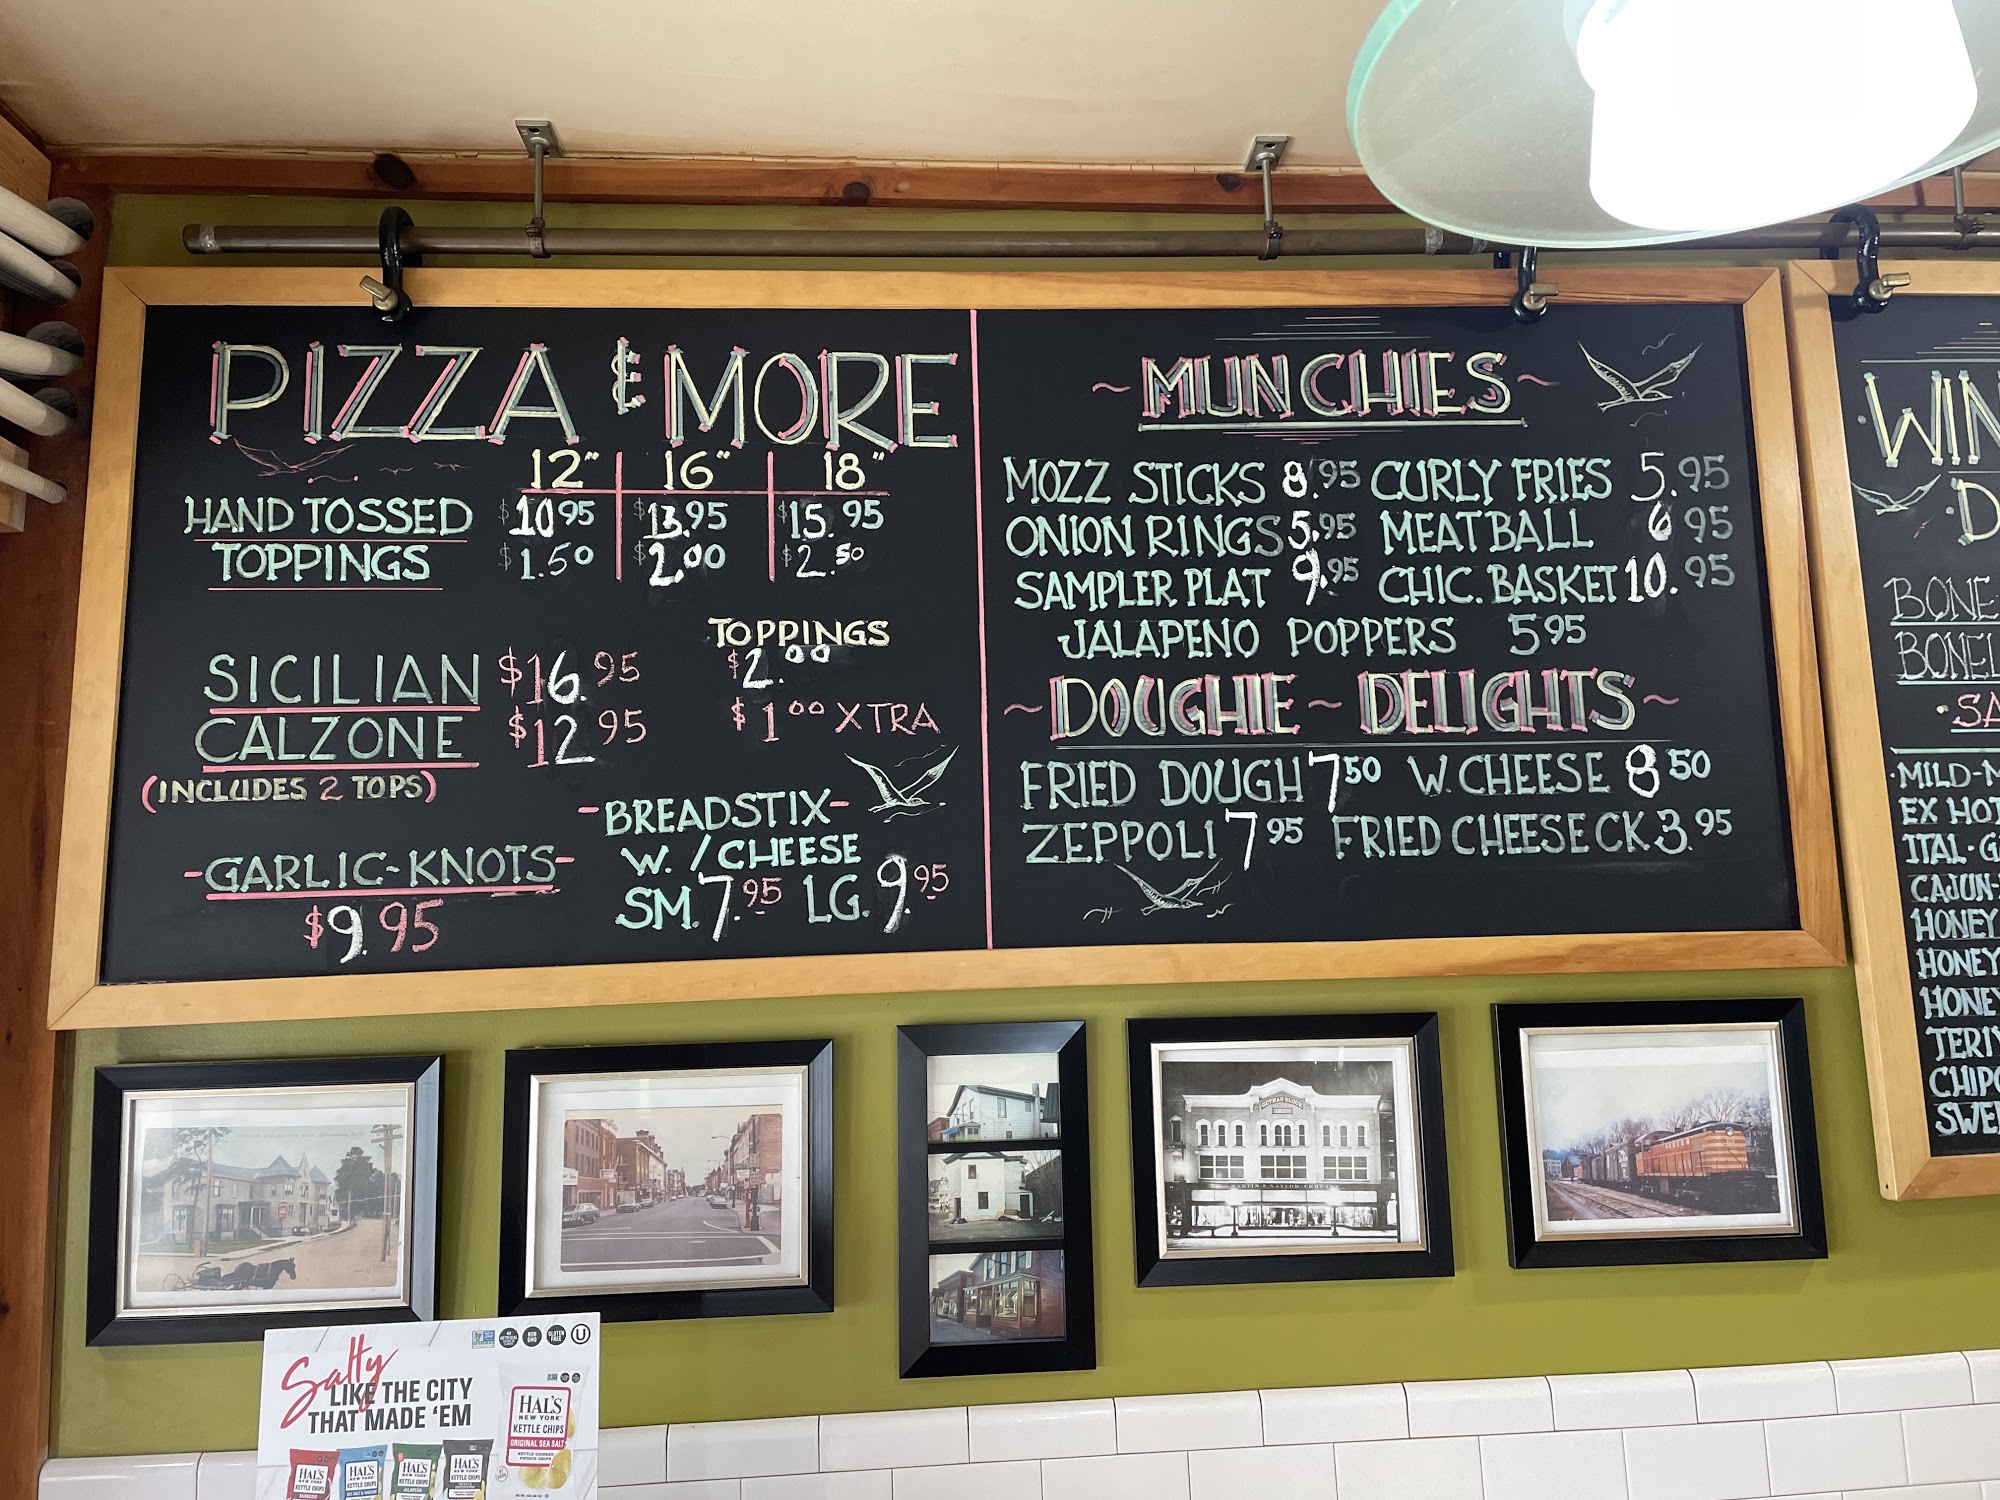 PIZZA & MORE
12" 16" 18"
HAND TOSSED $10.95 $13.95 $15.95
TOPPINGS $1.50 $2.00 $2.50
TOPPINGS
SICILIAN $16.95 $2.00
CALZONE $12.95 $1.00 XTRA
(INCLUDES 2 TOPS)
-GARLIC-KNOTS-
$9.95
-BREADSTIX-
W./CHEESE
SM. 7.95 LG. 9.95
~MUNCHIES~
MOZZ STICKS 8.95 CURLY FRIES 5.95
ONION RINGS 5.95 MEATBALL 6 95
SAMPLER PLAT 9.95 CHIC. BASKET 10.95
JALAPENO POPPERS 5 95
~DOUGHIE~DELIGHTS~
FRIED DOUGH 7 50 W. CHEESE 8 50
ZEPPOLI 7 95 FRIED CHEESE CK 3.95
WIN
D
BONE
BONEL
SA
MILD-M
EX HOT
ITAL-G
CAJUN-
HONEY
HONEY
HONEY
TERIY
CHIPO
SWEE
GETMAN BLOCK
MARTIN & NAYLOR COMPANY
Salty
LIKE THE CITY
THAT MADE 'EM
NON GMO
GLUTEN FREE
U
HAL'S
NEW YORK
KETTLE CHIPS
ORIGINAL SEA SALT
KETTLE COOKED
POTATO CHIPS
HAL'S
NEW YORK
KETTLE CHIPS
HAL'S
NEW YORK
KETTLE CHIPS
HAL'S
NEW YORK
KETTLE CHIPS
JALAPEÑO
HAL'S
NEW YORK
KETTLE CHIPS